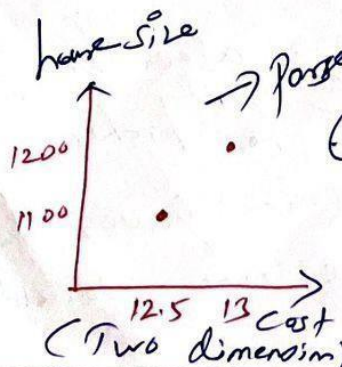 house size
1200
1100
12.5 13 Cost
(Two dimension